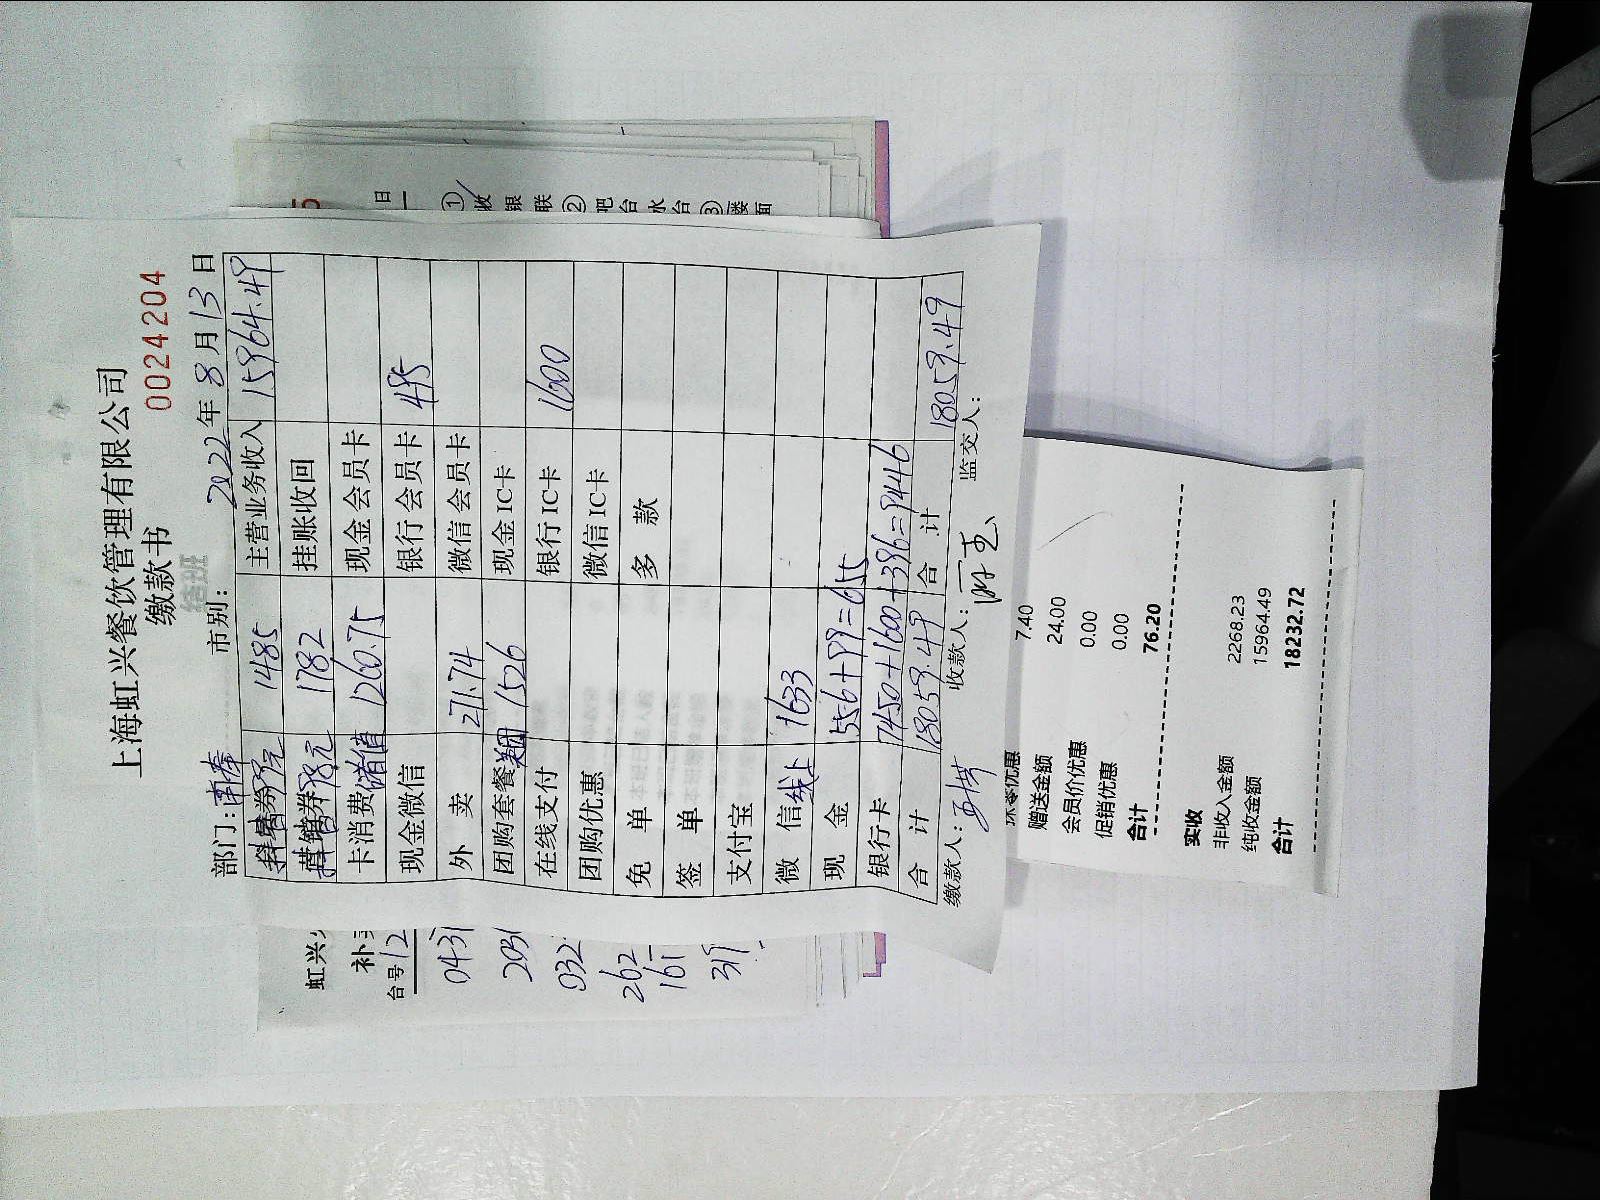 上海虹兴餐饮管理有限公司
缴款书 0024204
部门: 市别: 2022年8月13日
1485 主营业务收入 15964.49
1782 挂账收回
卡消费 储值 1260.75 现金会员卡
现金微信 银行会员卡 495
外卖 271.74 微信会员卡
团购套餐 1526 现金IC卡
在线支付 银行IC卡 1600
团购优惠 微信IC卡
免单 多款
签单
支付宝
微信 线上 1633
现金 556+99=655
银行卡 7450+1600+396=9446
合计 18059.49 合计 18059.49
缴款人: 收款人: 监交人:
日
①收银联②吧台水台③楼面
虹兴
补
台号 12
0431
2031
932
262
161
317
抹零优惠 7.40
赠送金额 24.00
会员价优惠 0.00
促销优惠 0.00
合计 76.20
实收
非收入金额 2268.23
纯收金额 15964.49
合计 18232.72